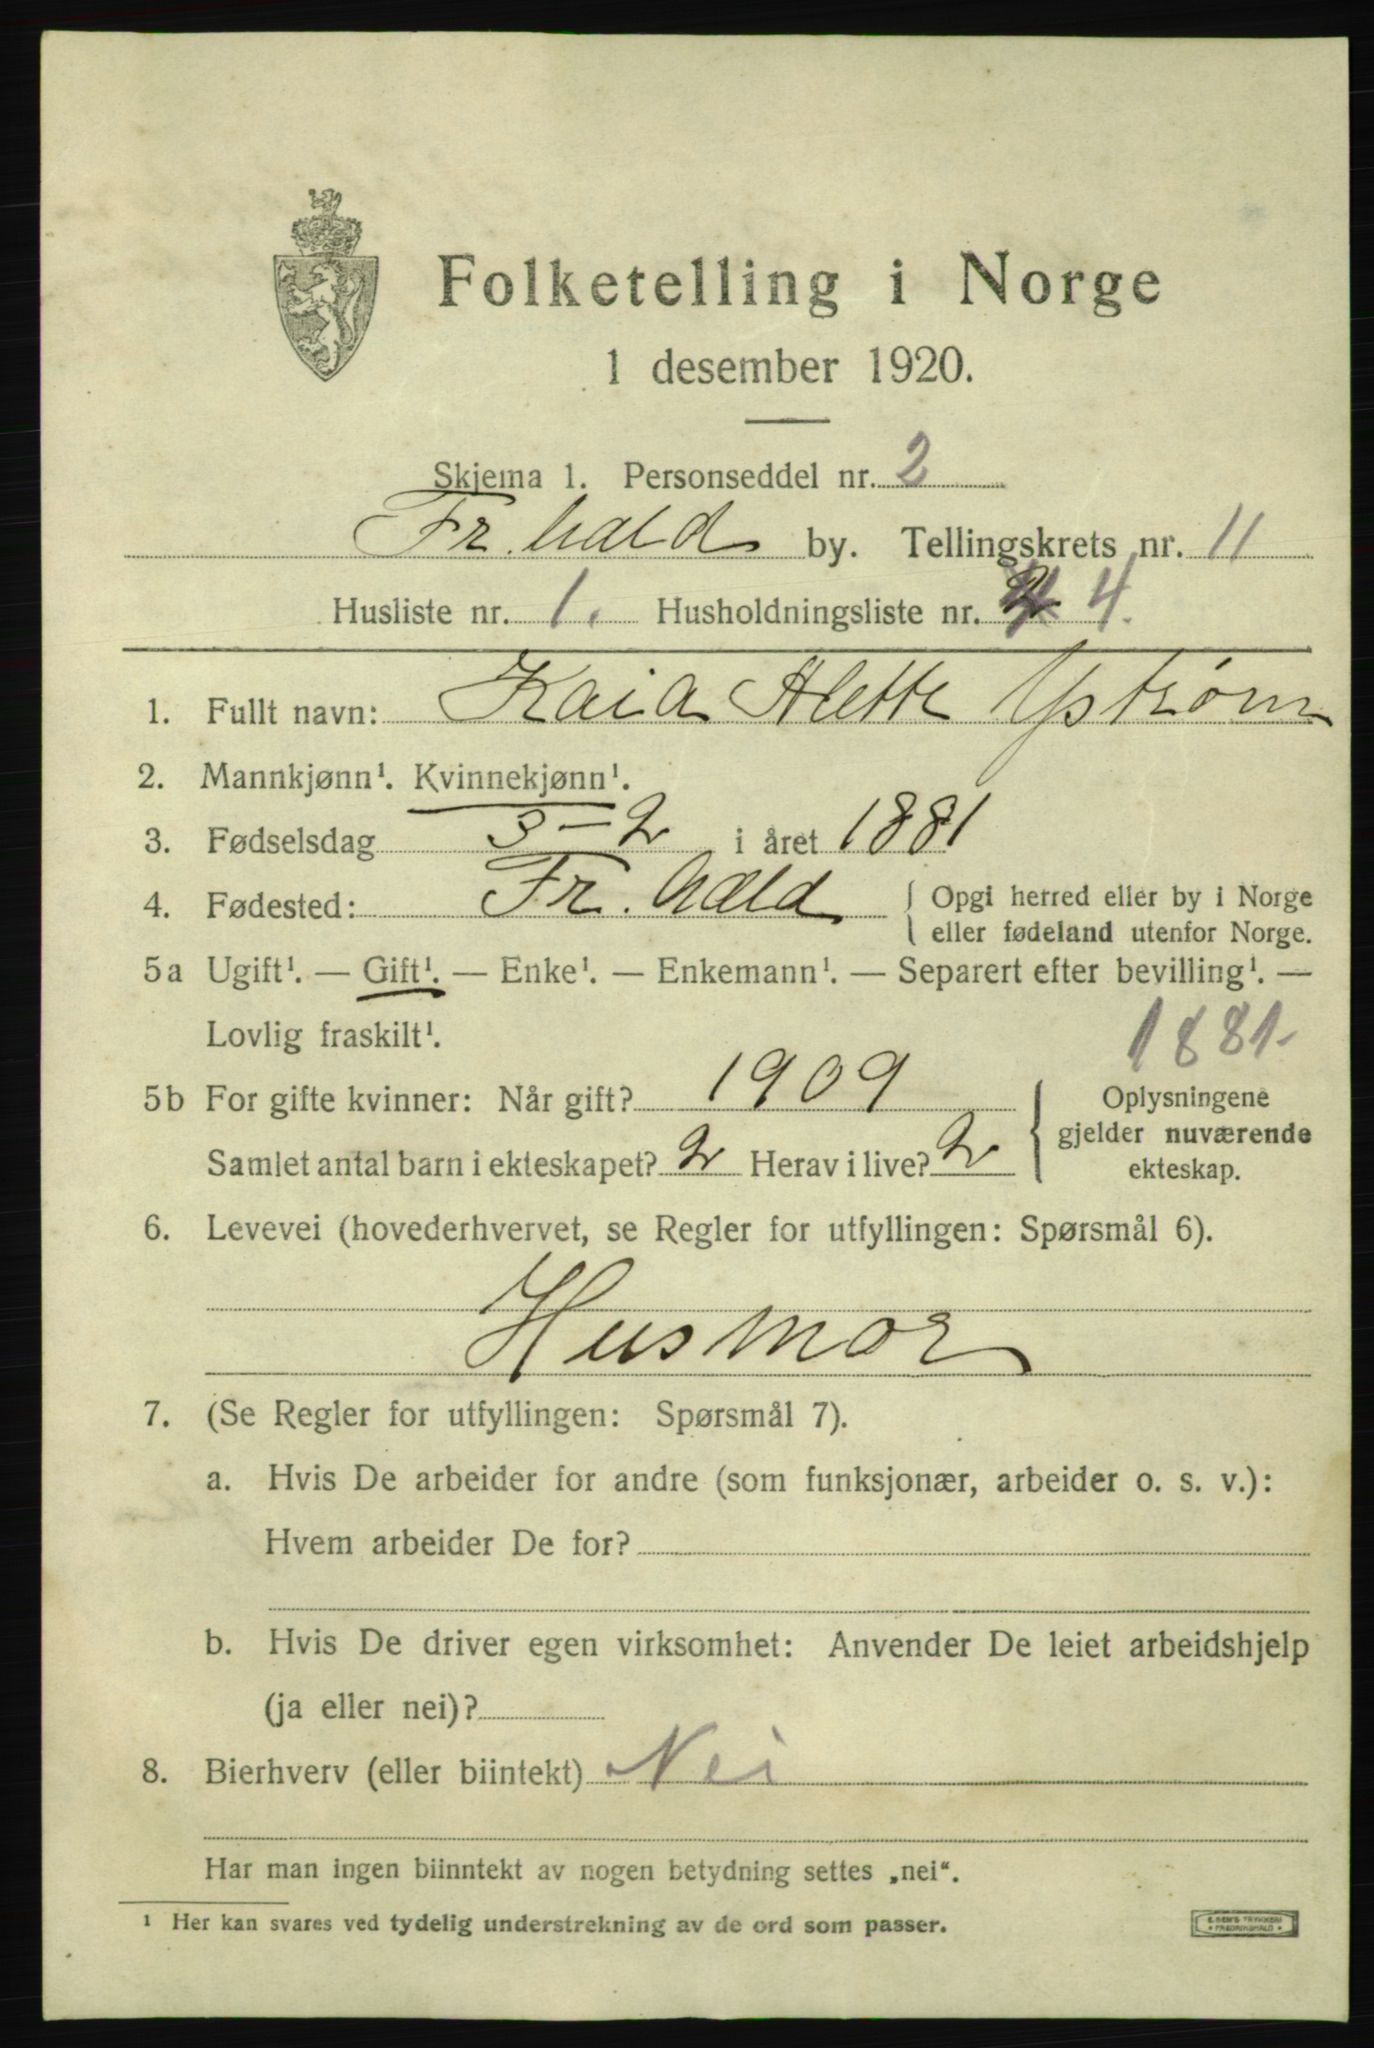 Folketelling i Norge
1 desember 1920.
Skjema 1. Personseddel nr. 2
Fr.hald by. Tellingskrets nr. 11
Husliste nr. 1. Husholdningsliste nr. 4.
1. Fullt navn: Kaia Alette Ystrøm
2. Mannkjønn¹. Kvinnekjønn¹.
3. Fødselsdag 3-2 i året 1881
4. Fødested: Fr.hald { Opgi herred eller by i Norge
eller fødeland utenfor Norge.
5a Ugift¹. — Gift¹. — Enke¹. — Enkemann¹. — Separert efter bevilling¹. —
Lovlig fraskilt¹.
1881.
5b For gifte kvinner: Når gift? 1909 { Oplysningene
gjelder nuværende
Samlet antal barn i ekteskapet? 2 Herav i live? 2 ekteskap.
6. Levevei (hovederhvervet, se Regler for utfyllingen: Spørsmål 6).
Husmor
7. (Se Regler for utfyllingen: Spørsmål 7).
a. Hvis De arbeider for andre (som funksjonær, arbeider o. s. v.):
Hvem arbeider De for?
b. Hvis De driver egen virksomhet: Anvender De leiet arbeidshjelp
(ja eller nei)?
8. Bierhverv (eller biintekt) Nei
Har man ingen biinntekt av nogen betydning settes „nei“.
¹ Her kan svares ved tydelig understrekning av de ord som passer.